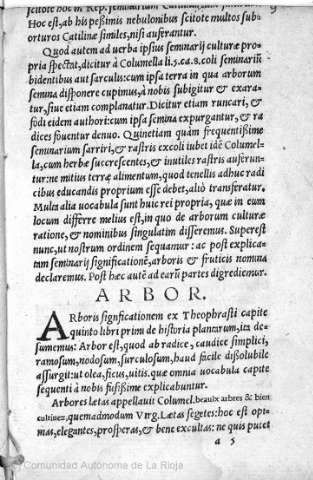 scitote hoc in Rep. seminarium
Hoc est, ab his pessimis nebulonibus scitote multos sub-
orturos Catilinæ similes, nisi auferantur.
Quod autem ad uerba ipsius seminarij culturæ pro-
pria spectant, dicitur à Columella li. 5. ca. 8. coli seminariū
bidentibus aut sarculis: cum ipsa terra in qua arborum
semina disponere cupimus, à nobis subigitur & exara-
tur, siue etiam complanatur. Dicitur etiam runcari, &
fodi eidem authori: cum ipsa semina expurgantur, & ra
dices fouentur denuo. Quinetiam quàm frequentissime
seminarium sarriri, & rastris excoli iubet idē Columel-
la, cum herbæ succrescentes, & inutiles rastris auferun-
tur: ne mitius terræ alimentum, quod tenellis adhuc radi
cibus educandis proprium esse debet, aliò transferatur.
Multa alia uocabula sunt huic rei propria, quæ in eum
locum differre melius est, in quo de arborum culturæ
ratione, & nominibus singulatim disseremus. Superest
nunc, ut nostrum ordinem sequamur: ac post explica-
tam seminarij significationē, arboris & fruticis nomina
declaremus. Post hæc autē ad earū partes digrediemur.
ARBOR.
ARboris signficationem ex Theophrasti capite
quinto libri primi de historia plantarum, ita de-
sumemus: Arbor est, quod ab radice, caudice simplici,
ramosum, nodosum, surculosum, haud facile dissolubile
assurgit: ut olea, ficus, uitis. que omnia uocabula capite
sequenti à nobis fusissime explicabuntur.
Arbores lætas appellauit Columel. beaulx arbres & bien
cultiuez, quemadmodum Virg. Lætas segetes: hoc est opti-
mas, elegantes, prosperas, & bene excultas: ne quis putet
a 5
Comunidad Autónoma de La Rioja